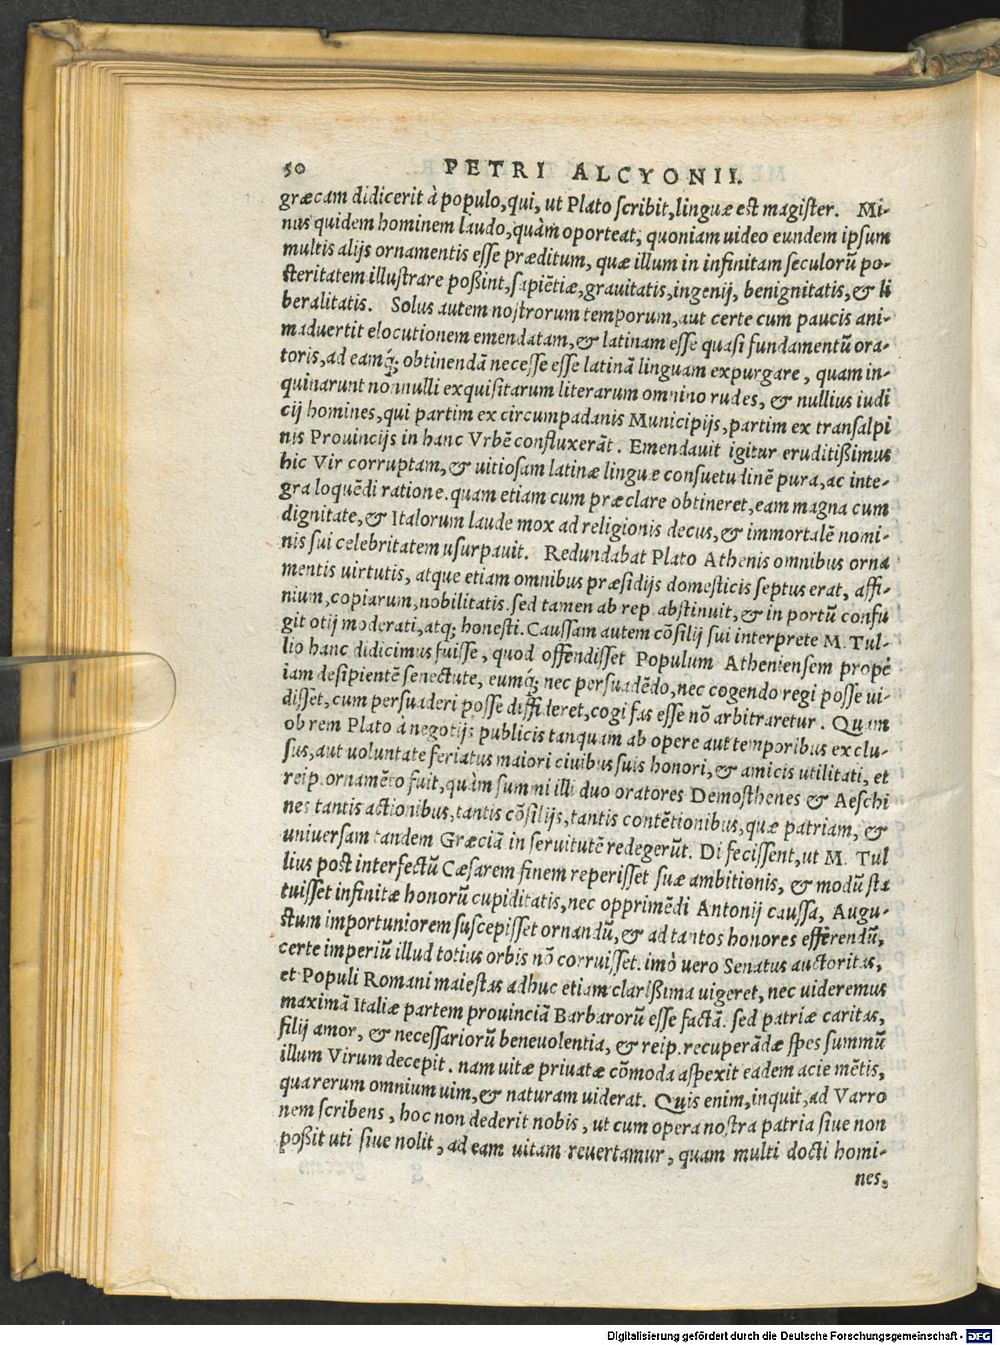 50 PETRI ALCYONII.
græcam didicerit à populo, qui, ut Plato scribit, linguæ est magister. Mi-
nus quidem hominem laudo, quàm oporteat, quoniam uideo eundem ipsum
multis alijs ornamentis esse præditum, quæ illum in infinitam seculorũ po-
steritatem illustrare poßint, sapiẽtiæ, grauitatis, ingenij, benignitatis, & li
beralitatis. Solus autem nostrorum temporum, aut certe cum paucis ani-
maduertit elocutionem emendatam, & latinam esse quasi fundamentũ ora-
toris, ad eamq́; obtinendã necesse esse latinã linguam expurgare, quam in-
quinarunt nonnulli exquisitarum literarum omnino rudes, & nullius iudi
cij homines, qui partim ex circumpadanis Municipijs, partim ex transalpi
nis Prouincijs in hanc Vrbẽ confluxerãt. Emendauit igitur eruditißimus
hic Vir corruptam, & uitiosam latinæ linguæ consuetudinẽ pura, ac inte-
gra loquẽdi ratione. quam etiam cum præclare obtineret, eam magna cum
dignitate, & Italorum laude mox ad religionis decus, & immortalẽ nomi-
nis sui celebritatem usurpauit. Redundabat Plato Athenis omnibus orna
mentis uirtutis, atque etiam omnibus præsidijs domesticis septus erat, affi-
nium, copiarum, nobilitatis. sed tamen ab rep. abstinuit, & in portũ confu
git otij moderati, atq; honesti. Caussam autem cõsilij sui interprete M. Tul-
lio hanc didicimus fuisse, quod offendisset Populum Atheniensem propè
iam desipientẽ senectute, eumq́; nec persuadẽdo, nec cogendo regi posse ui-
disset, cum persuaderi posse diffideret, cogi fas esse nõ arbitraretur. Quam
ob rem Plato à negotijs publicis tanquam ab opere aut temporibus exclu-
sus, aut uoluntate feriatus maiori ciuibus suis honori, & amicis utilitati, et
reip. ornamẽto fuit, quàm summi illi duo oratores Demosthenes & Aeschi
nes tantis actionibus, tantis cõsilijs, tantis contẽtionibus, quæ patriam, &
uniuersam tandem Græciã in seruitutẽ redegerũt. Di fecissent, ut M. Tul
lius post interfectũ Cæsarem finem reperisset suæ ambitionis, & modũ sta
tuisset infinitæ honorũ cupiditatis, nec opprimẽdi Antonij caussa, Augu-
stum importuniorem suscepisset ornandũ, & ad tantos honores efferendũ,
certe imperiũ illud totius orbis nõ corruisset. imò uero Senatus auctoritas,
et Populi Romani maiestas adhuc etiam clarißima uigeret, nec uideremus
maximã Italiæ partem prouinciã Barbarorũ esse factã. sed patriæ caritas,
filij amor, & necessariorũ beneuolentia, & reip. recuperãdæ spes summũ
illum Virum decepit. nam uitæ priuatæ cõmoda aspexit eadem acie mẽtis,
qua rerum omnium uim, & naturam uiderat. Quis enim, inquit, ad Varro
nem scribens, hoc non dederit nobis, ut cum opera nostra patria siue non
poßit uti siue nolit, ad eam uitam reuertamur, quam multi docti homi-
nes,
Digitalisierung gefördert durch die Deutsche Forschungsgemeinschaft - DFG